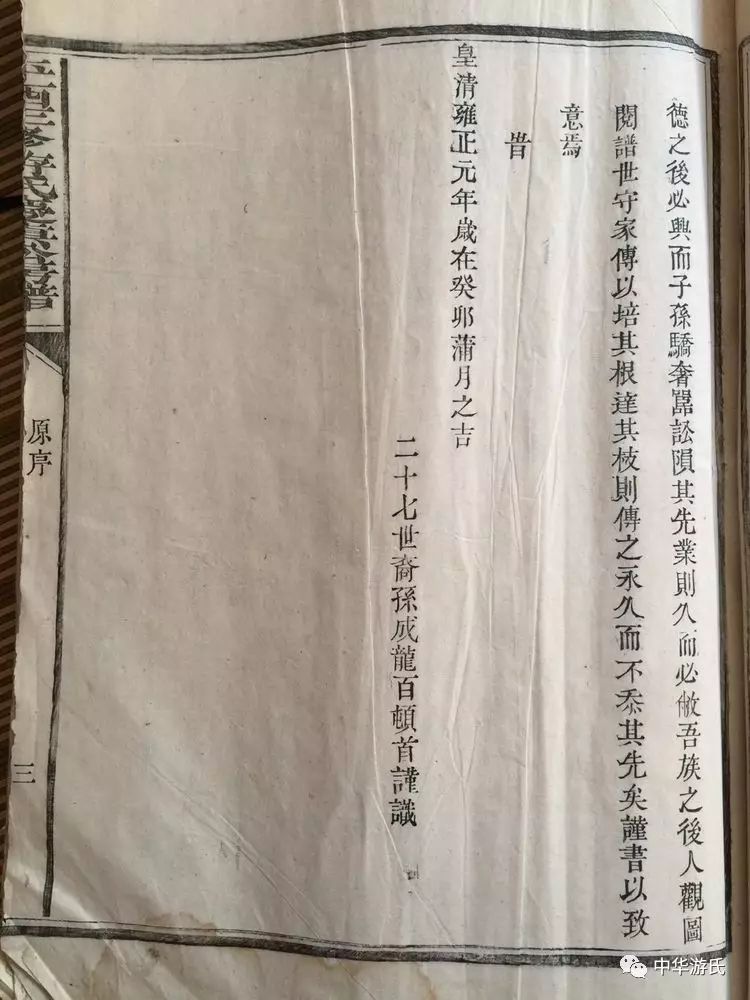 德之後必興而子孫驕奢嚚訟隕其先業則久而必敝吾族之後人觀圖
閱譜世守家傳以培其根達其枝則傳之永久而不忝其先矣謹書以致
意焉
旹
皇清雍正元年歲在癸卯蒲月之吉
二十七世裔孫成龍百頓首謹識
原序
三
中华游氏